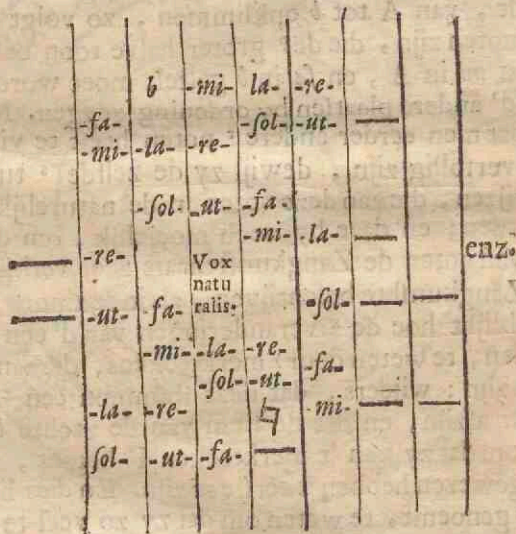 b -mi- la- -re-
-fa- -ſol- -ut-
-mi- -la- -re-
-ſol- -ut- -fa-
-mi- -la-
-re- Vox enz.
natu
ralis. -ſol-
-ut- -fa-
-mi- -la- -re-
-ſol- -ut- -fa-
-la- -re- ♮ -mi-
ſol- -ut- -fa-